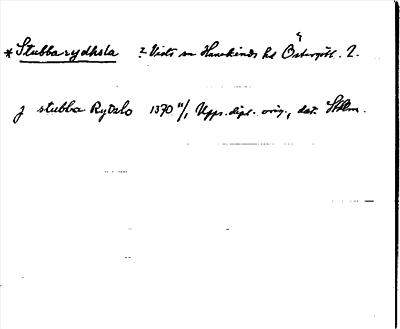 * Stubbarydhsla ? Vists sn Hanekinds hd Östergötl. 2.
j stubba Rytzlo 1370 11/1 Upps. dipl. orig., dat. Sthlm.